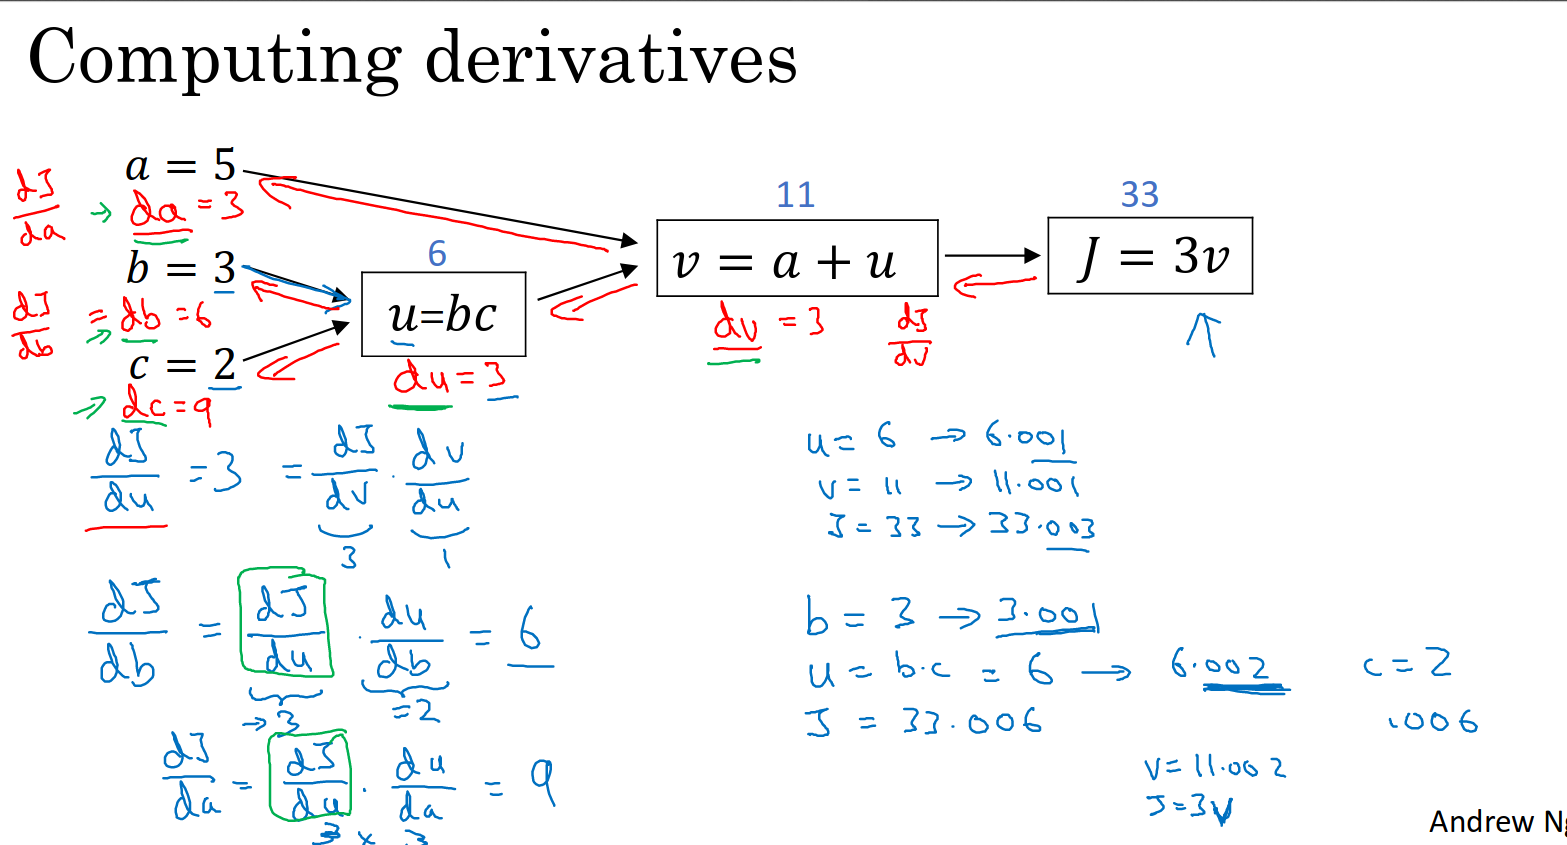 Computing derivatives
a = 5
dJ/da → da = 3
b = 3
dJ/db = db = 6
c = 2
→ dc = 9
6
u=bc
du = 3
11
v = a + u
dv = 3 dJ/dv
33
J = 3v
dJ/du = 3 = dJ/dv · dv/du
3 1
dJ/db = dJ/du · du/db = 6
→ 3 = 2
dJ/da = dJ/du · du/da = 9
3 × 3
u = 6 → 6.001
v = 11 → 11.001
J = 33 → 33.003
b = 3 → 3.001
u = b·c = 6 → 6.002 c = 2
J = 33.006 .006
v = 11.002
J = 3v
Andrew Ng